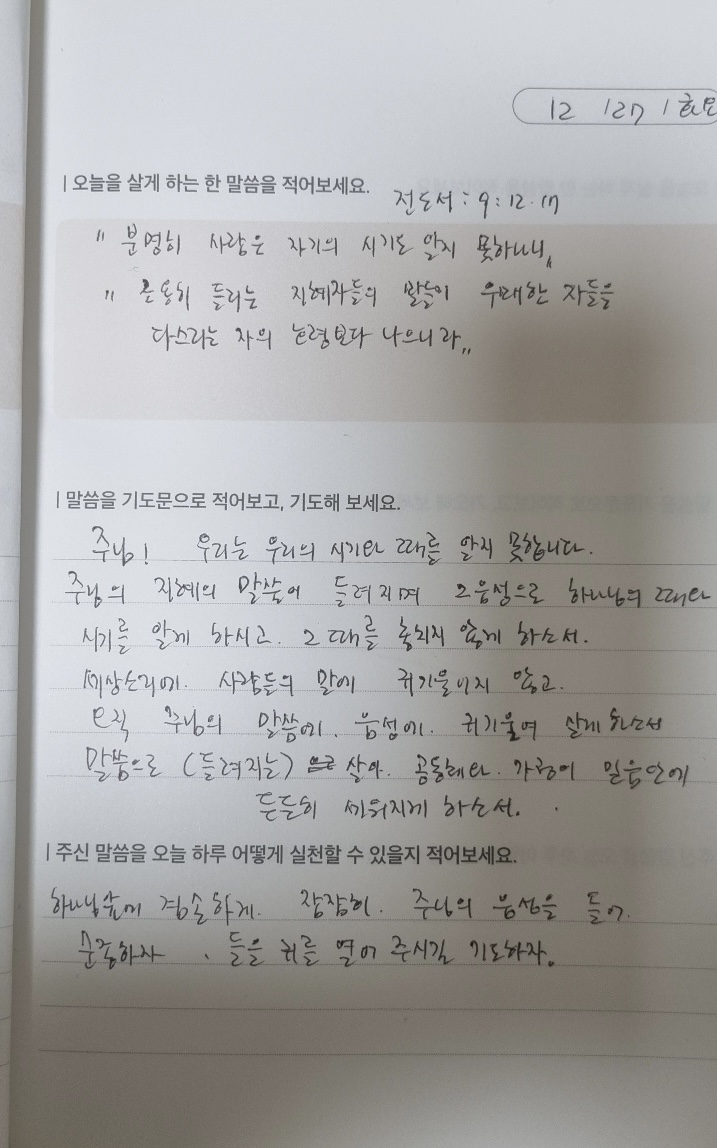 12 127 / 화요
| 오늘을 살게 하는 한 말씀을 적어보세요.
전도서 : 9 : 12. 17
" 분명히 사람은 자기의 시기도 알지 못하나니"
" 조용히 들리는 지혜자들의 말들이 우매한 자들을
다스리는 자의 호령보다 나으니라"
| 말씀을 기도문으로 적어보고, 기도해 보세요.
주님! 우리는 우리의 시기와 때를 알지 못합니다.
주님의 지혜의 말씀이 들려지며 그 음성으로 하나님의 때와
시기를 알게 하시고. 그 때를 놓치지 않게 하소서.
세상소리에. 사람들의 말에 귀기울이지 않고.
오직 주님의 말씀에. 음성에. 귀기울여 살게 하소서
말씀으로 (들려지는) 살아. 공동체와. 가정이 믿음안에
든든히 세워지게 하소서.
| 주신 말씀을 오늘 하루 어떻게 실천할 수 있을지 적어보세요.
하나님 앞에 겸손하게. 잠잠히. 주님의 음성을 들어.
순종하자. 들을 귀를 열어 주시길 기도하자.